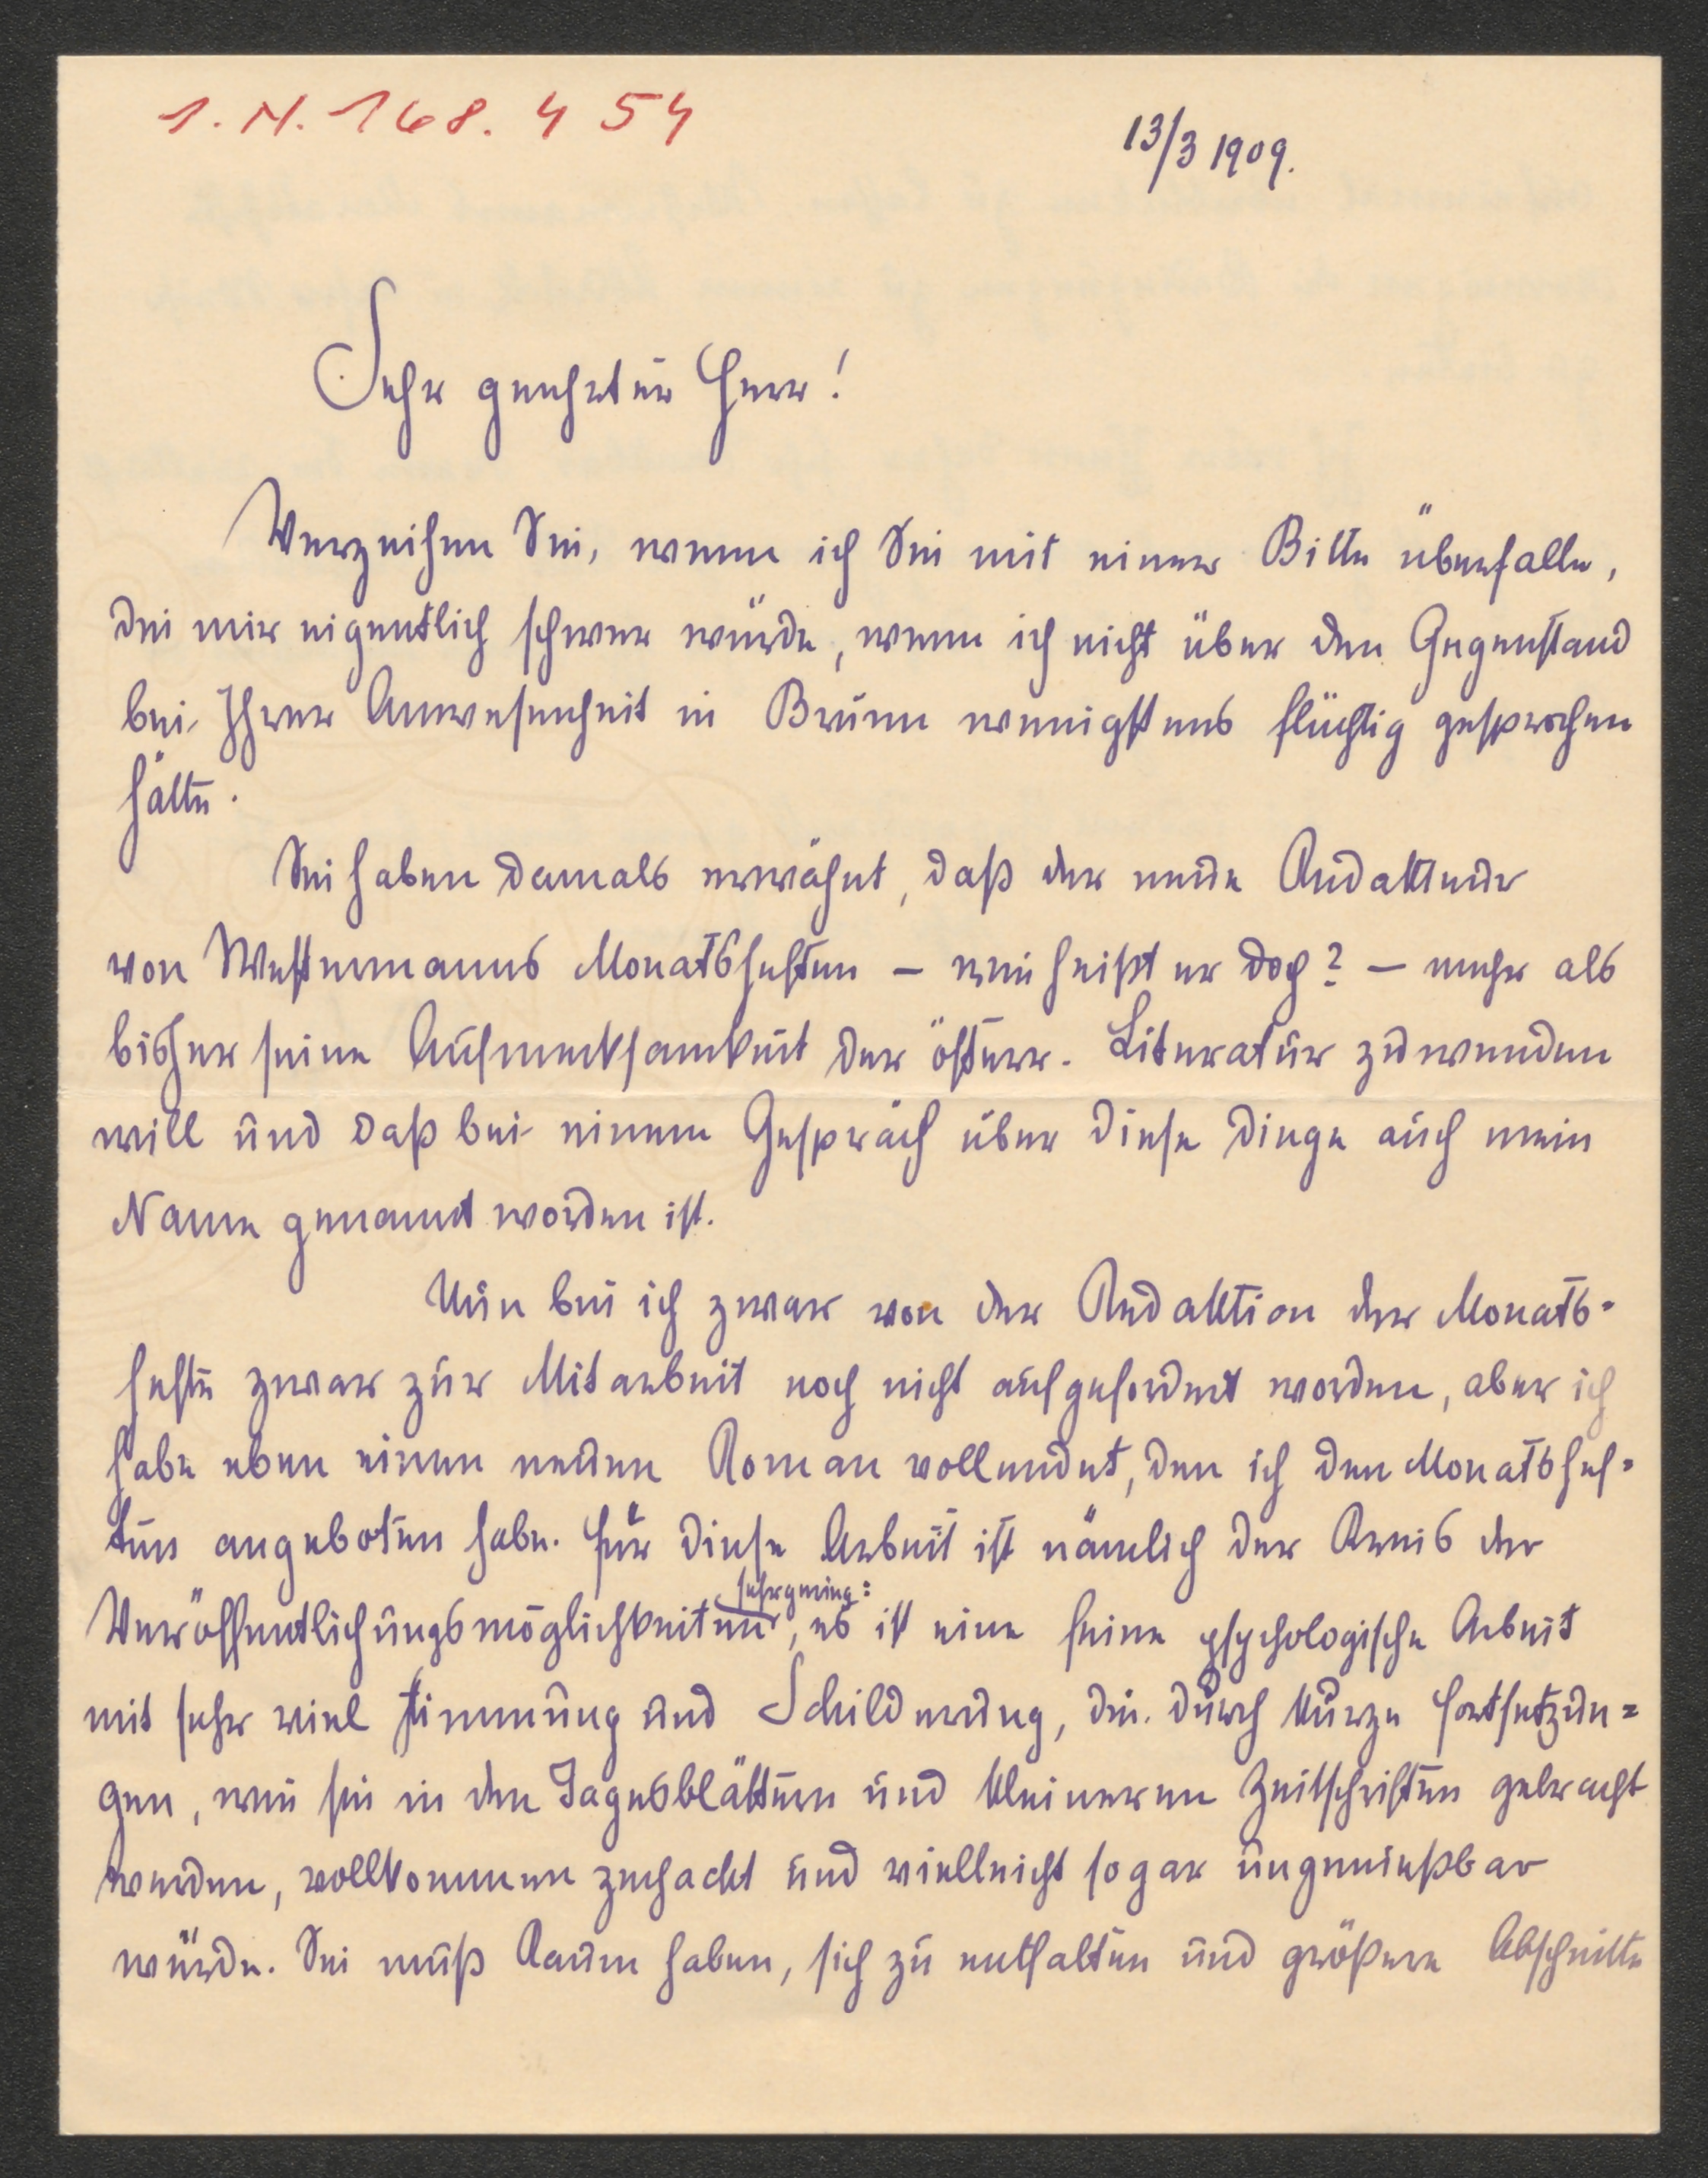 I.N. 168.454
13/3 1909.
Sehr geehrter Herr!
Verzeihen Sie, wenn ich Sie mit einer Bitte überfalle,
die mir eigentlich schwer würde, wenn ich nicht über den Gegenstand
bei Ihrer Anwesenheit in Brünn wenigstens flüchtig gesprochen
hätte.
Sie haben damals erwähnt, daß der neue Redakteur
von Westermanns Monatsheften – wie heißt er doch? – mehr als
bisher seine Aufmerksamkeit der österr. Literatur zuwenden
will und daß bei einem Gespräch über diese Dinge auch mein
Name genannt worden ist.
Nun bin ich zwar von der Redaktion der Monats=
hefte zwar zur Mitarbeit noch nicht aufgefordert worden, aber ich
habe eben einen neuen Roman vollendet, den ich den Monatshef=
ten angeboten habe. Für diese Arbeit ist nämlich der Kreis der
Veröffentlichungsmöglichkeiten sehr gering: es ist eine feine psychologische Arbeit
mit sehr viel Stimmung und Schilderung, die durch kurze Fortsetzun=
gen, wie sie in den Tagesblättern und kleineren Zeitschriften gebracht
werden, vollkommen zerhackt und vielleicht sogar ungenießbar
würde. Sie muß Raum haben, sich zu entfalten und größere Abschnitte